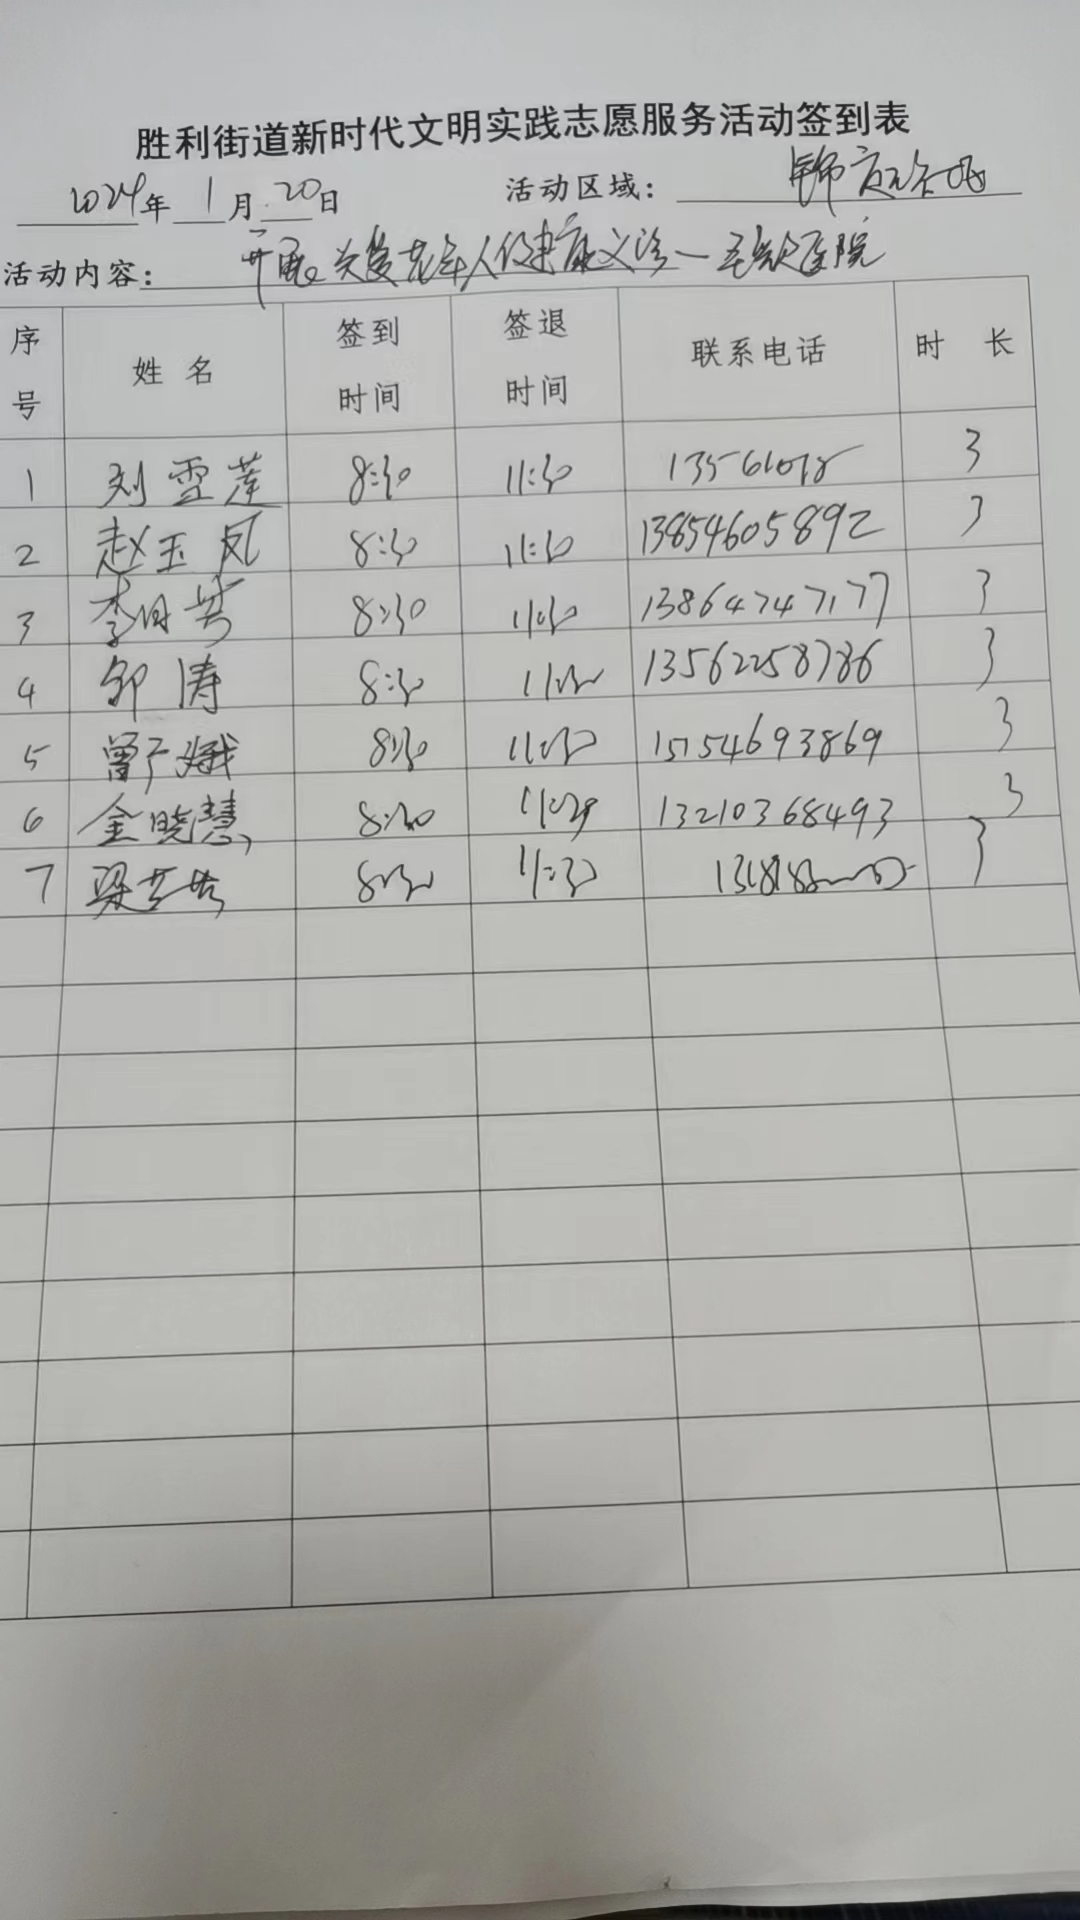 胜利街道新时代文明实践志愿服务活动签到表
2024年 1月 20日 活动区域: 锦
活动内容: 开展关爱老年人健康义诊一 医院
序号 姓名 签到时间 签退时间 联系电话 时 长
1 刘雪莲 8:30 11:30 3
2 赵玉凤 8:30 11:30 13854605892 3
3 李 8:30 11:30 13864747177 3
4 邹涛 8:30 11:30 13562258786 3
5 曾广娥 8:30 11:30 15154693869 3
6 金晓慧 8:30 13210368493 3
7 梁 8:30 11:30 3